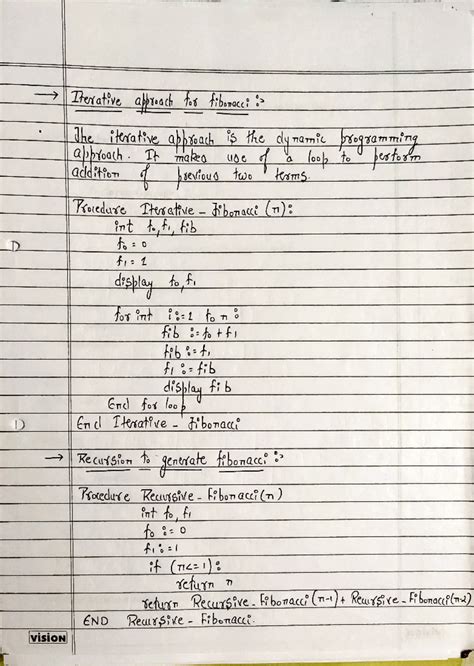 → Iterative approach for fibonacci :-
The iterative approach is the dynamic programming
approach. It makes use of a loop to perform
addition of previous two terms.
Procedure Iterative - Fibonacci (n):
int f₀, f₁, fib
f₀ = 0
f₁ = 1
display f₀, f₁
for int i:=1 to n:
fib := f₀ + f₁
fib := f₁
f₁ := fib
display fib
End for loop
End Iterative - Fibonacci
→ Recursion to generate fibonacci :-
Procedure Recursive - Fibonacci (n)
int f₀, f₁
f₀ := 0
f₁ := 1
if (n<=1):
return n
return Recursive - Fibonacci (n-1) + Recursive - Fibonacci (n-2)
END Recursive - Fibonacci.
vision